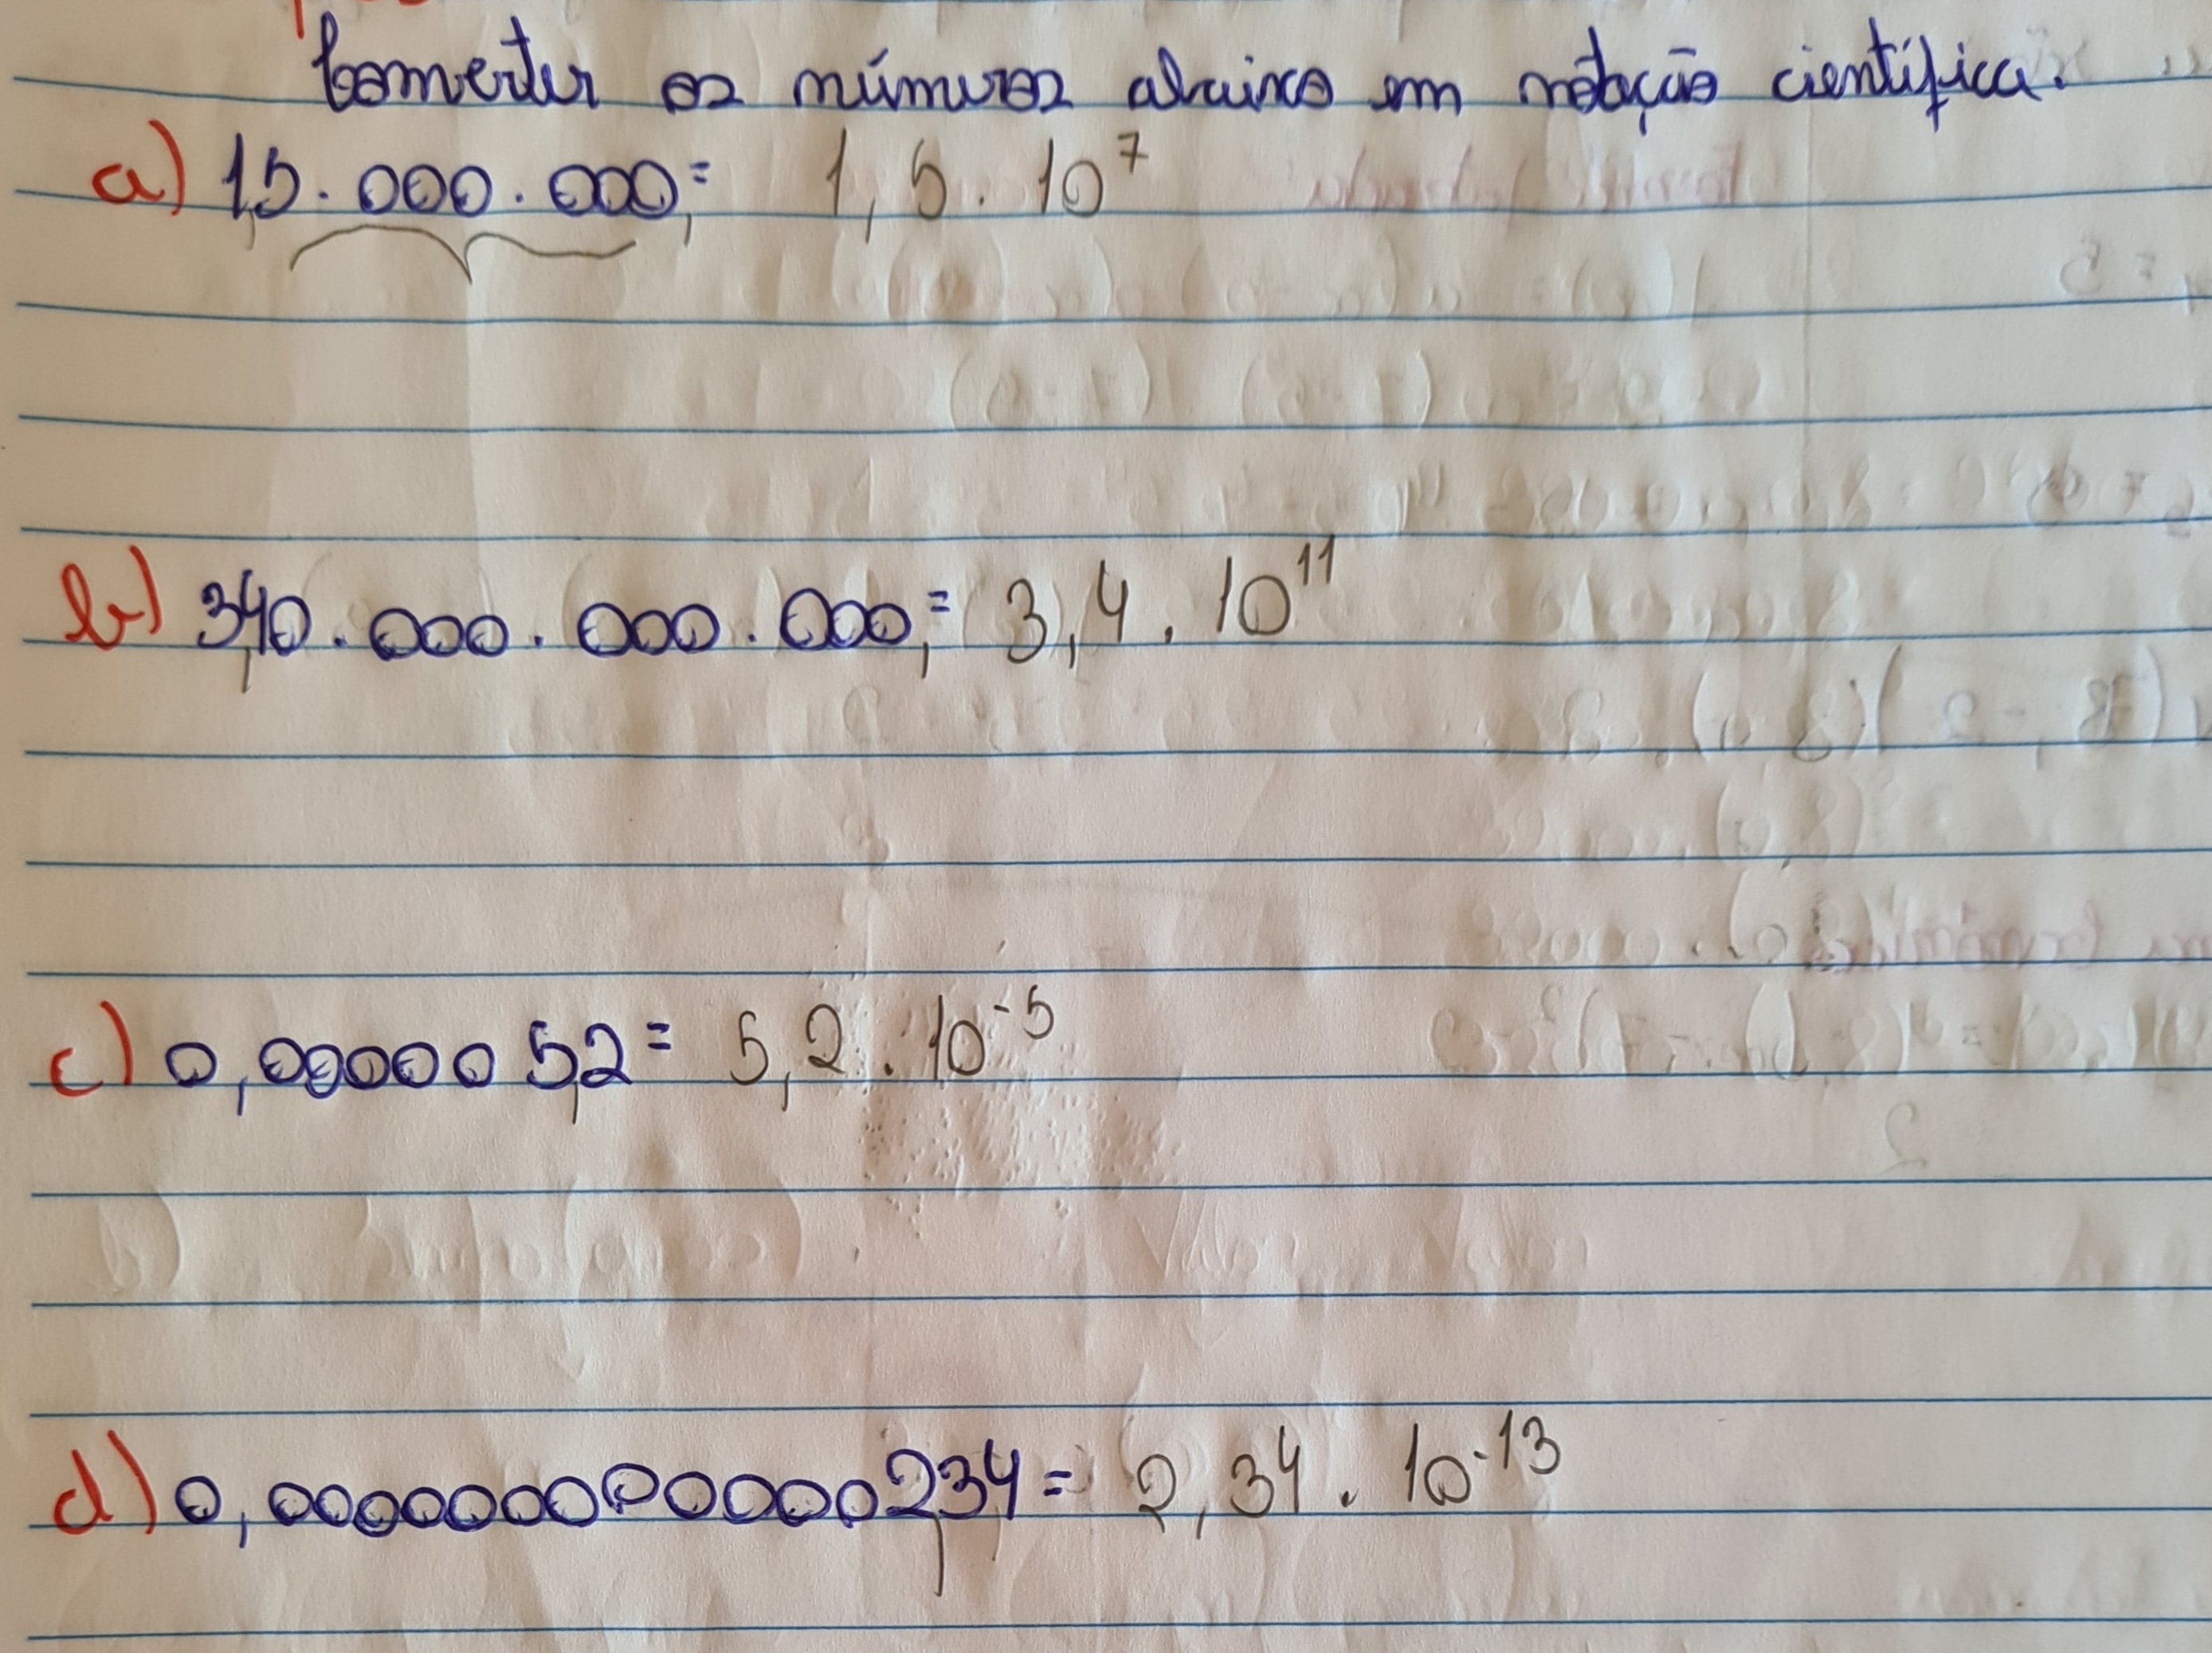 Converter os números abaixo em notação científica.
a) 1,5.000.000,= 1,5 . 10⁷
b) 3,40.000.000.000,= 3,4 . 10¹¹
c) 0,00000 5,2= 5,2 . 10⁻⁵
d) 0,0000000000002,34= 2,34 . 10⁻¹³